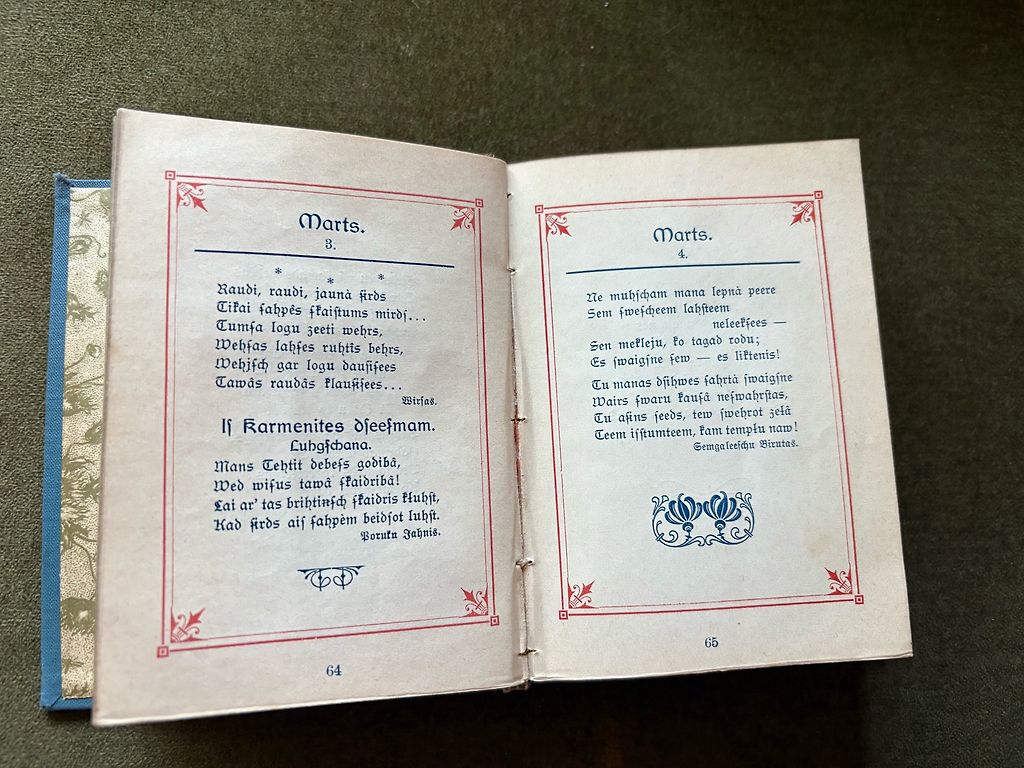 Marts.
3.
* * *
Raudi, raudi, jaunà ſirds
Tikai ſahpès ſkaiſtums mirdſ...
Tumſa logu zeeti wehrs,
Wehſas lahſes ruhtîs behrs,
Wehjſch gar logu dauſiſees
Tawâs raudâs klauſiſees...
Wirſas.
Iſ Karmenites dſeeſmam.
Luhgſchana.
Mans Tehtit debeſs godibâ,
Wed wiſus tawâ ſkaidribâ!
Lai ar' tas brihtinſch ſkaidris kluhſt,
Kad ſirds aiſ ſahpèm beidſot luhſt.
Poruku Jahnis.
64
Marts.
4.
Ne muhſcham mana lepnà peere
Sem ſweſcheem lahſteem
neleekſees —
Sen mekleju, ko tagad rodu;
Es ſwaigſne ſew — es liktenis!
Tu manas dſihwes ſahrtà ſwaigſne
Wairs ſwaru kauſâ neſwahrſtas,
Tu aſins ſeeds, tew ſwehrot zelâ
Teem iſſtumteem, kam templu naw!
Semgaleeſchu Birutas.
65